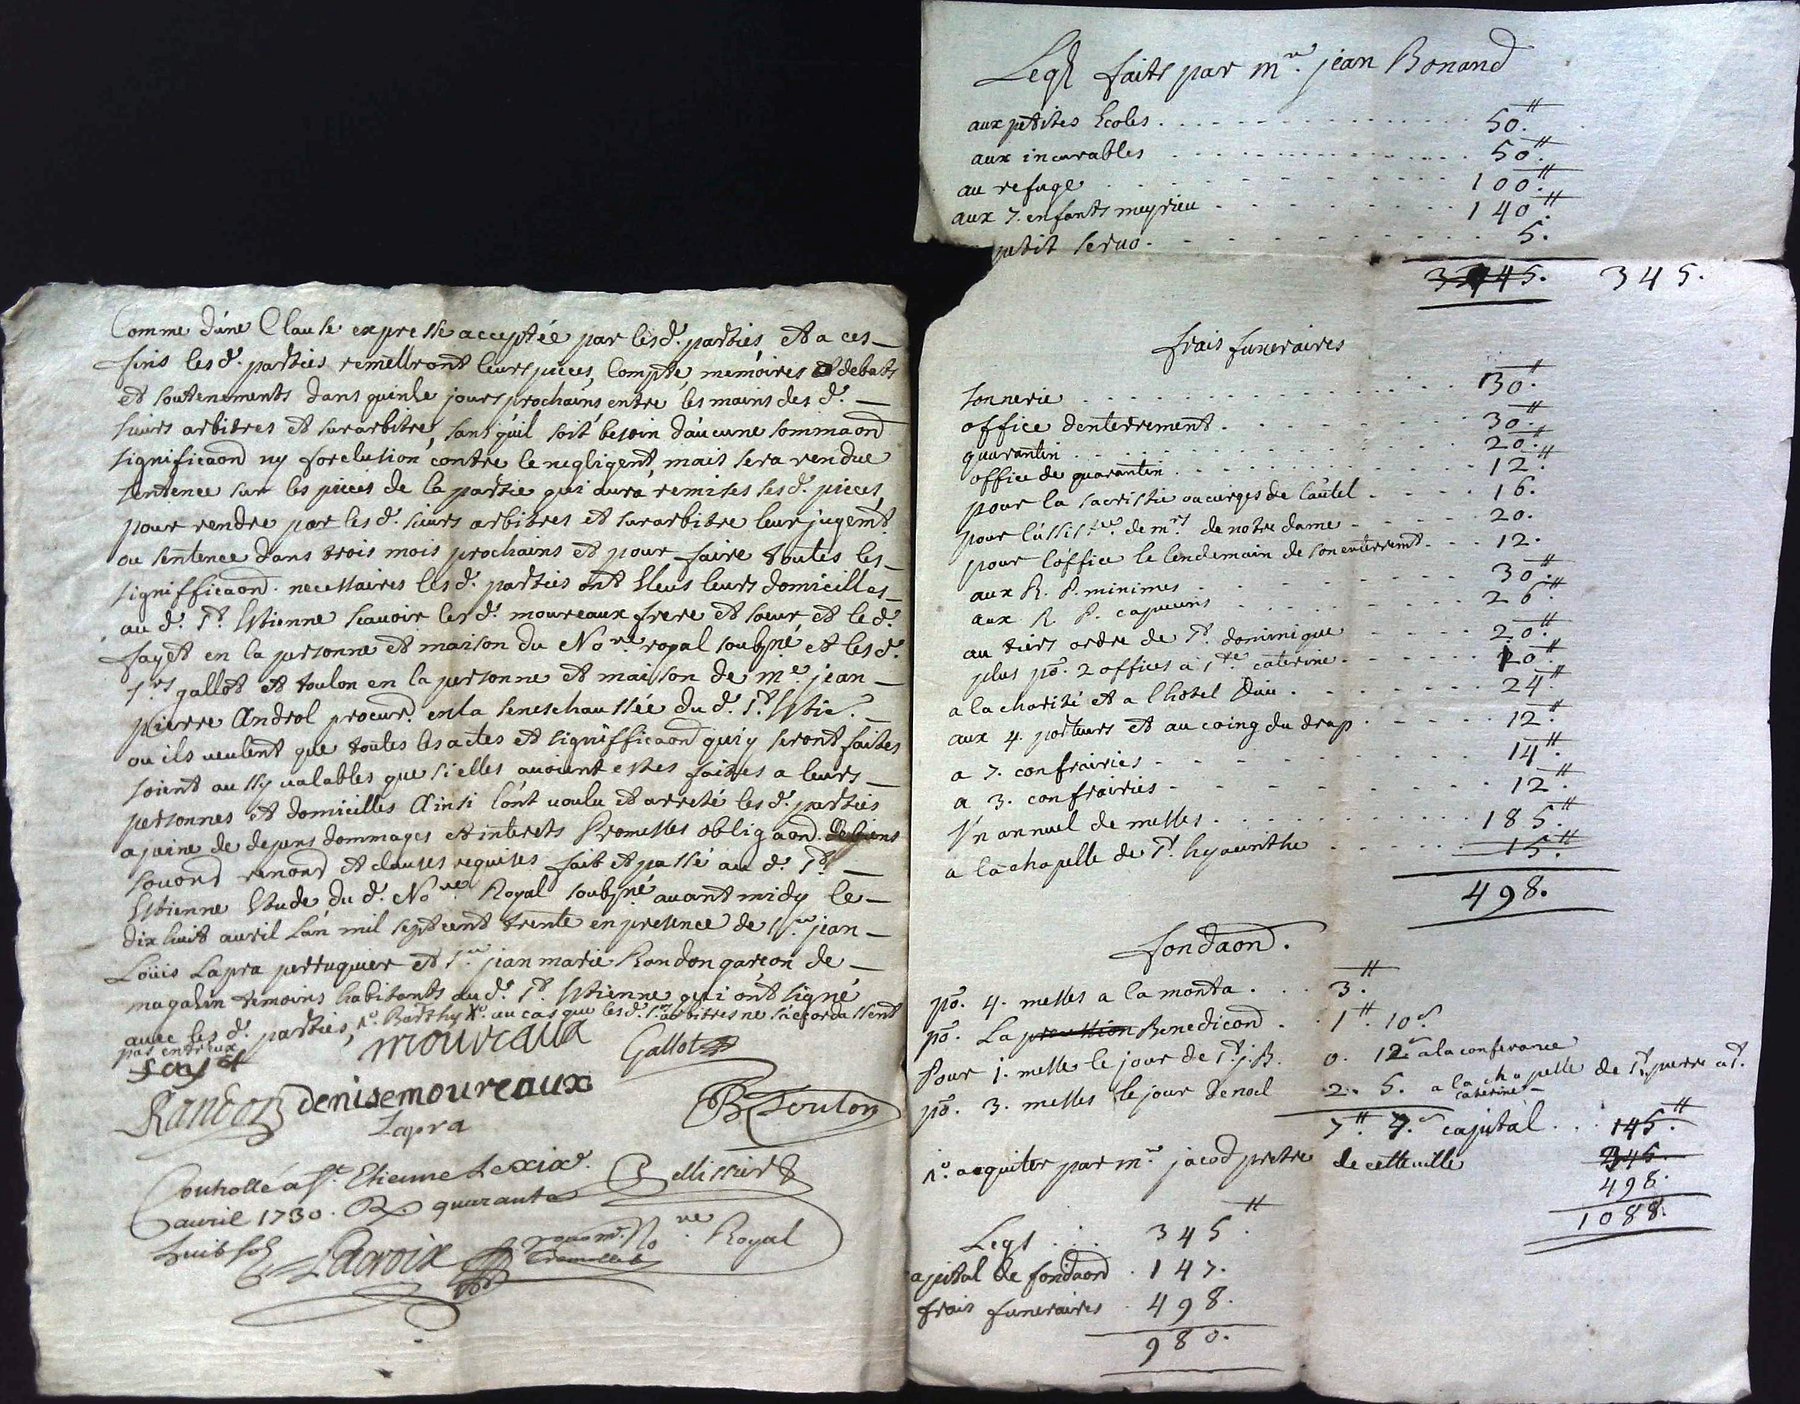 Comme d'une Clause expresse acceptée par lesd. parties, et a ces
fins lesd. parties remettront leurs pieces, Compte, memoires et debats
et soutenements dans quinze jours prochains entre les mains des d.
sieurs arbitres et surarbitre, sans qu'il soit besoin d'aucune sommaõn
significaõn ny forclusion contre le negligent, mais sera rendue
sentence sur les pieces de la partie qui aura remises sesd. pieces,
pour rendre par lesd. sieurs arbitres et surarbitre leur jugemt.
ou sentence dans trois mois prochains et pour faire toutes les
signifficaõn. necessaires lesd. parties ont Eleus leurs domicilles
au d. St. Estienne scavoir lesd. moureaux frere et soeur et led.
fayet en la personne et maison du Nore. royal soubsné et lesd.
srs gallot et toulon en la personne et maison de me. jean
pierre Androl procurr. en la seneschaussée du d. St. Estie.
ou ils veulent que toutes les actes et signifficaõn qui y seront faites
soient aussy valables que si elles avoient estes faites a leurs
personnes et domicilles Ainsi l'ont voulu et arreté lesd. parties
a peine de depens dommages et interets Promesses obligaõn.
et clauses requises fait et passé au d. St.
Estienne Etude du d. Nore Royal soubsné avant midy le
dix huit avril L'an mil sept cent trente en presence de Sr. jean
Loüis Lapra perruquier et Sr. jean marie Randon garçon de
magasin temoins habitants du d. St. Estienne qui ont signé
avec les d. parties, au cas que lesd. srs arbitres ne s'acordassent
pas entreux
fayet
moureaux
Gallot
Randon
denisemoureaux
Lapra
Toulon
Controllé a St. Etienne Le xixe.
avril 1730. R quarante
huit sols
Pellissier
Lacroix
Nore Royal
Legs faits par mre. jean Bonand
aux petites Ecoles . . . . 50.#
aux incurables . . . . 50.#
au refuge . . . . 100.#
aux 7. enfants meyrieu . . . . 140.#
petit . . . . 5.
345. 345.
frais funeraires
sonnerie . . . . 30.#
office denterrement . . . . 30.#
quarantin . . . . 20.#
office de quarantin . . . . 12.#
pour la sacristie ou cierges de l'autel . . . . 16.
pour l'assistce. de mrs de notre dame . . . . 20.
pour l'office le lendemain de son enterremt. . . . 12.
aux R. P. minimes . . . . 30.#
aux R P. capucins . . . . 26.#
au tiers ordre de St. dominique . . . . 20.#
plus po. 2 offices a Ste. caterine . . . . 20.#
a la charité et a l'hotel dieu . . . . 24.#
aux 4. porteurs et au coing du drap . . . . 12.#
a 7. confrairies . . . . 14.#
a 3. confrairies . . . . 12.#
Un annuel de messes . . . . 185.#
a la chapelle de St. hyacinthe . . . . 15.#
498.
fondaõn.
po. 4. messes a la monta . . . 3.#
po. La Benediction . 1.# 10s
Pour 1. messe le jour de St. j. B. 0. 12s a la conferance
po. 3. messes le jour de noel 2. 5. a la chapelle de St. pierre a St.
caterine
7.# 7.s capital . . . 145.#
a acquiter par mre jacod pretre de cette ville 345.
498.
1088.
Legs . . . 345.#
capital de fondaõn . 147.
frais funeraires . 498.
980.